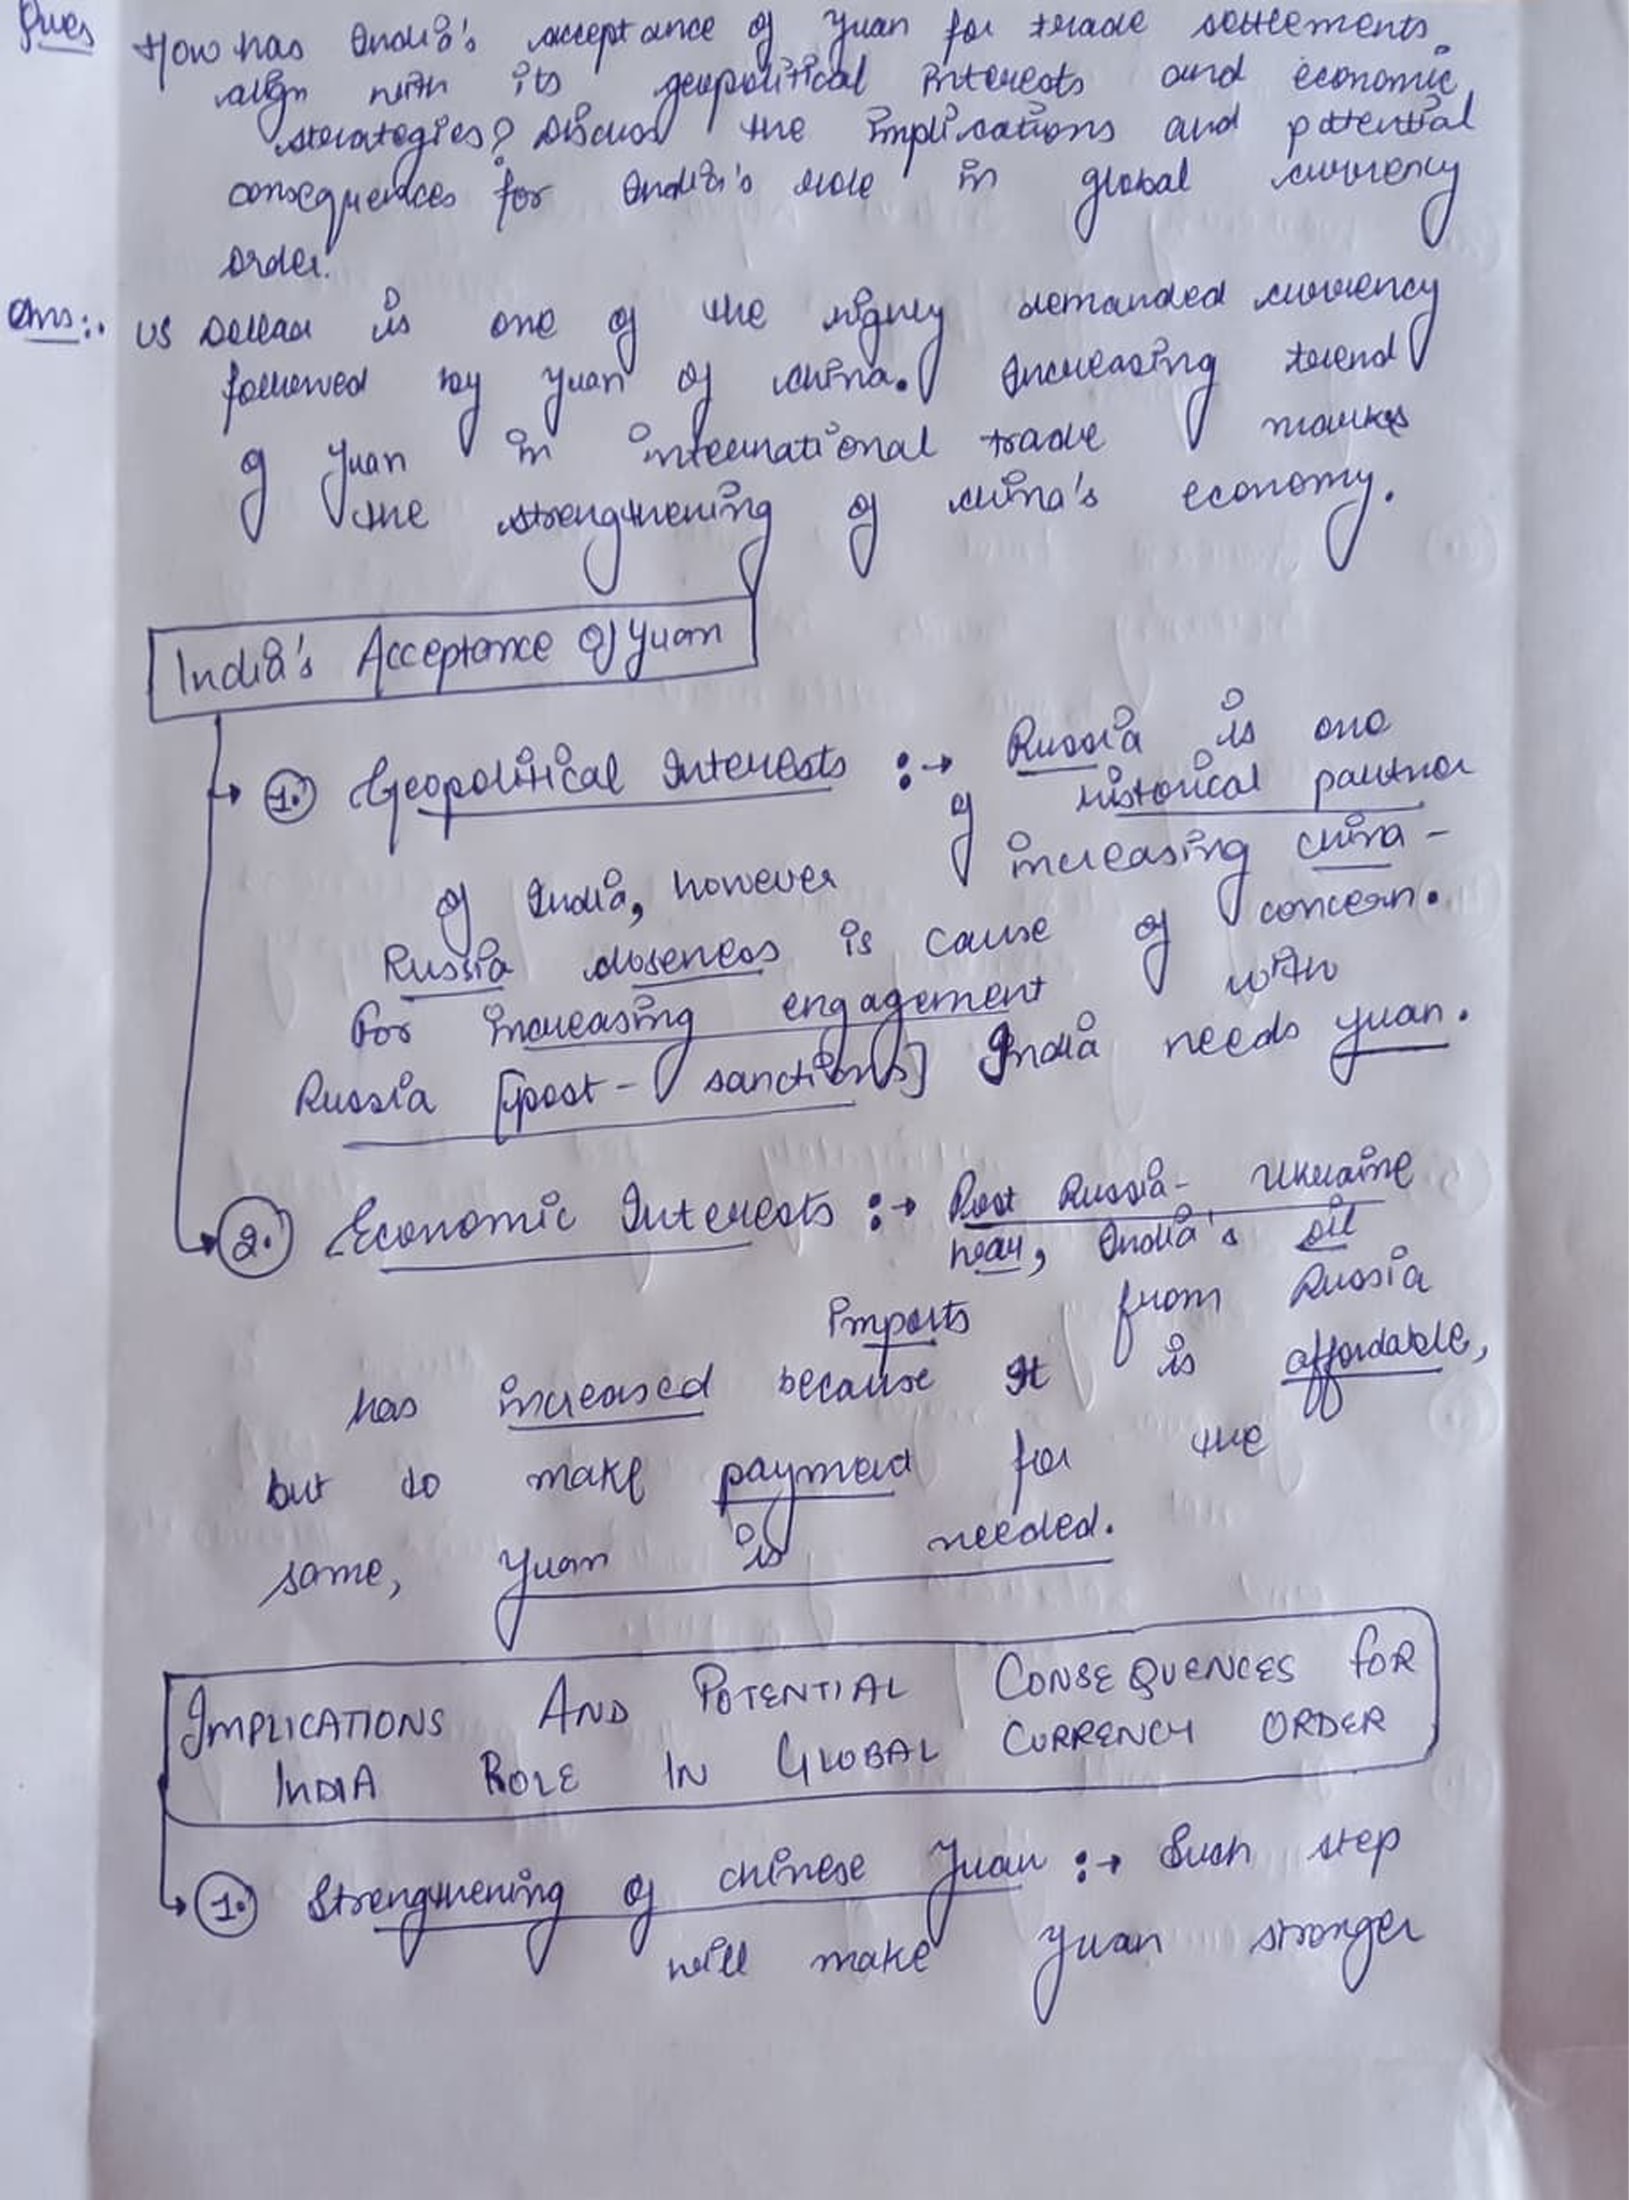 Ques How has India's acceptance of Yuan for trade settlements
align with its geopolitical interests and economic
strategies? Discuss the implications and potential
consequences for India's role in global currency
order.
Ans:. US Dollar is one of the highly demanded currency
followed by Yuan of China. Increasing trend
of Yuan in international trade marks
the strengthening of China's economy.
India's Acceptance Of Yuan
1. Geopolitical Interests :→ Russia is one
of historical partner
of India, however increasing China-
Russia closeness is cause of concern.
For increasing engagement with
Russia [post-sanctions] India needs yuan.
2. Economic Interests :→ Post Russia-Ukraine
war, India's oil
imports from Russia
has increased because it is affordable,
but to make payment for the
same, yuan is needed.
IMPLICATIONS AND POTENTIAL CONSEQUENCES FOR
INDIA ROLE IN GLOBAL CURRENCY ORDER
1. Strengthening of Chinese Yuan :→ Such step
will make yuan stronger